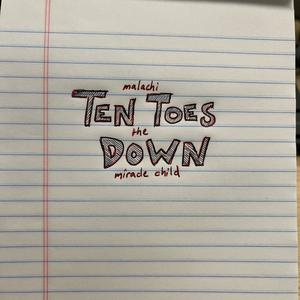 malachi
TEN TOES
the
DOWN
miracle child